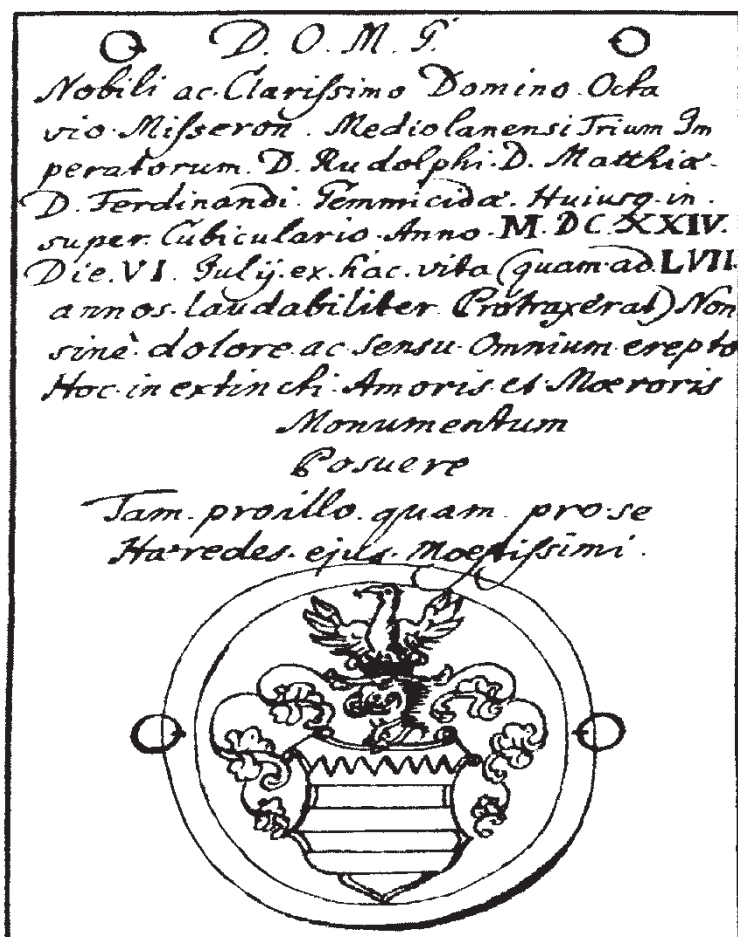 D. O. M. T.
Nobili ac. Clarissimo Domino. Octa
vio. Misseron. Mediolanensi Trium Im
peratorum. D. Rudolphi. D. Matthiæ.
D. Ferdinandi. Gemmicidæ. Huiusq. in.
super. Cubiculario. Anno. M. DC. XXIV.
Die. VI. Julij. ex. hac. vita (quam. ad. LVII.
annos. laudabiliter. Protraxerat) Non
sinè. dolore. ac. Sensu. Omnium. erepto
Hoc. in extincti. Amoris. et. Moeroris
Monumentum
Posuere
Tam. pro. illo. quam. pro. se
Hæredes. ejus. Moestissimi.